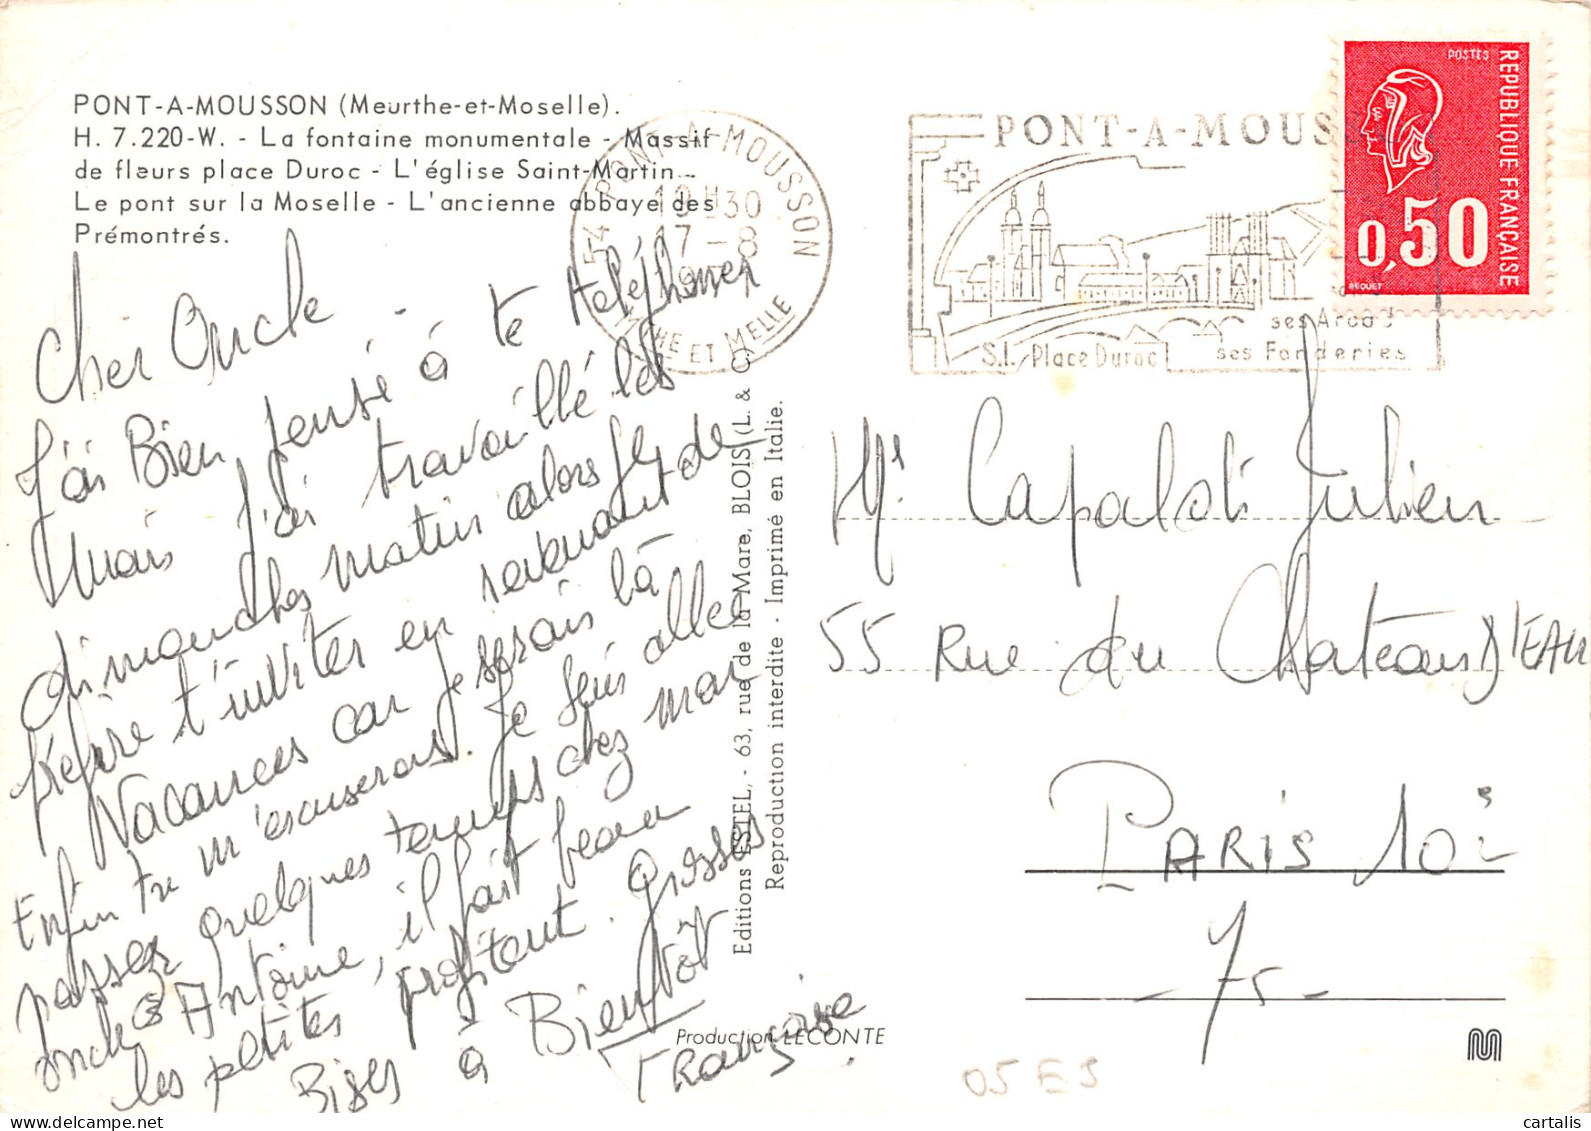 PONT-A-MOUSSON (Meurthe-et-Moselle).
H. 7.220-W. - La fontaine monumentale - Massif
de fleurs place Duroc - L'église Saint-Martin -
Le pont sur la Moselle - L'ancienne abbaye des
Prémontrés.
Cher Oncle
J'ai Bien pensé à te téléphoner
Mais j'ai travaillé les
dimanches matin alors je
préfère t'inviter en revenant de
Vacances car je serais là
Enfin tu m'excuseras. Je suis allée
passer quelques temps chez mon
oncle Antoine, il fait beau
les petites profitent. Grosses
Bises à Bientôt
Françoise
Editions ESTEL, - 63, rue de la Mare, BLOIS (L. & C.)
Reproduction interdite - Imprimé en Italie.
Production LECONTE
54 PONT-A-MOUSSON
19H30
17-8
MTHE ET MELLE
PONT-A-MOUS
ses Arcad
S.I. Place Duroc
ses Fonderies
POSTES
REPUBLIQUE FRANÇAISE
0,50
BEQUET
Mr. Capaldi Julien
55 Rue du Chateau D'EAU
PARIS 10è
- 75 -
05 E S
cartalis